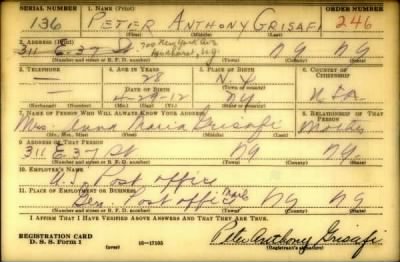 SERIAL NUMBER 1. NAME (Print) ORDER NUMBER
136 PETER ANTHONY GRISAFI 246
(First) (Middle) (Last)
2. ADDRESS (Print)
700 New York Ave
311 E. 37 St. NY NY
(Number and street or R. F. D. number) (Town) (County) (State)
3. TELEPHONE 4. AGE IN YEARS 5. PLACE OF BIRTH 6. COUNTRY OF CITIZENSHIP
28 N.Y.
DATE OF BIRTH
4-28-12 NY USA
(Exchange) (Number) (Mo.) (Day) (Yr.) (State or country)
7. NAME OF PERSON WHO WILL ALWAYS KNOW YOUR ADDRESS 8. RELATIONSHIP OF THAT PERSON
Mrs Anna Maria Grisafi Mother
(Mr., Mrs., Miss) (First) (Middle) (Last)
9. ADDRESS OF THAT PERSON
311 E. 37 St NY NY
(Number and street or R. F. D. number) (Town) (County) (State)
10. EMPLOYER'S NAME
U.S. Post office
11. PLACE OF EMPLOYMENT OR BUSINESS
Gen. Post office NY NY
(Number and street or R. F. D. number) (Town) (County) (State)
I AFFIRM THAT I HAVE VERIFIED ABOVE ANSWERS AND THAT THEY ARE TRUE.
REGISTRATION CARD
D. S. S. Form 1 (over) 16-17105 Peter Anthony Grisafi
(Registrant's signature)